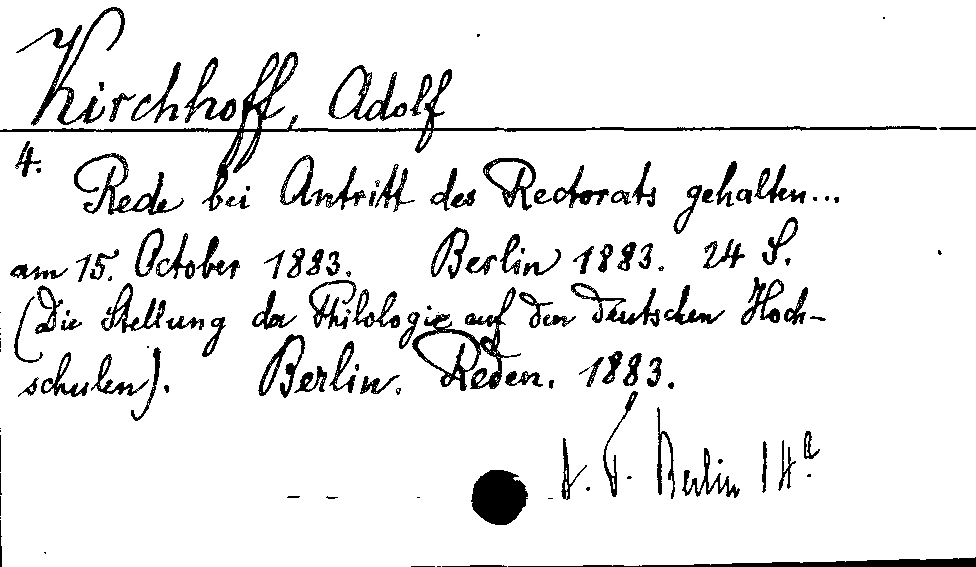 Kirchhoff, Adolf
4.
Rede bei Antritt des Rectorats gehalten...
am 15. October 1883. Berlin 1883. 24 S.
(Die Stellung der Philologie auf den deutschen Hoch-
schulen). Berlin. Reden. 1883.
Berlin 14a